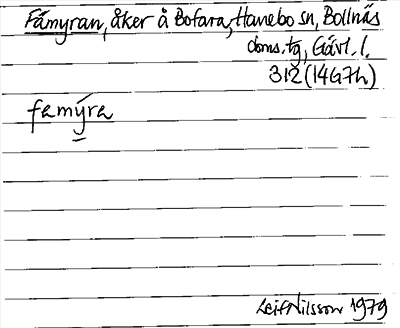 Fämyran, åker å Bofara, Hanebo sn, Bollnäs
doms.tg, Gävl. l.
312 (14G7h)
famý̱ra
Leif Nilsson 1979